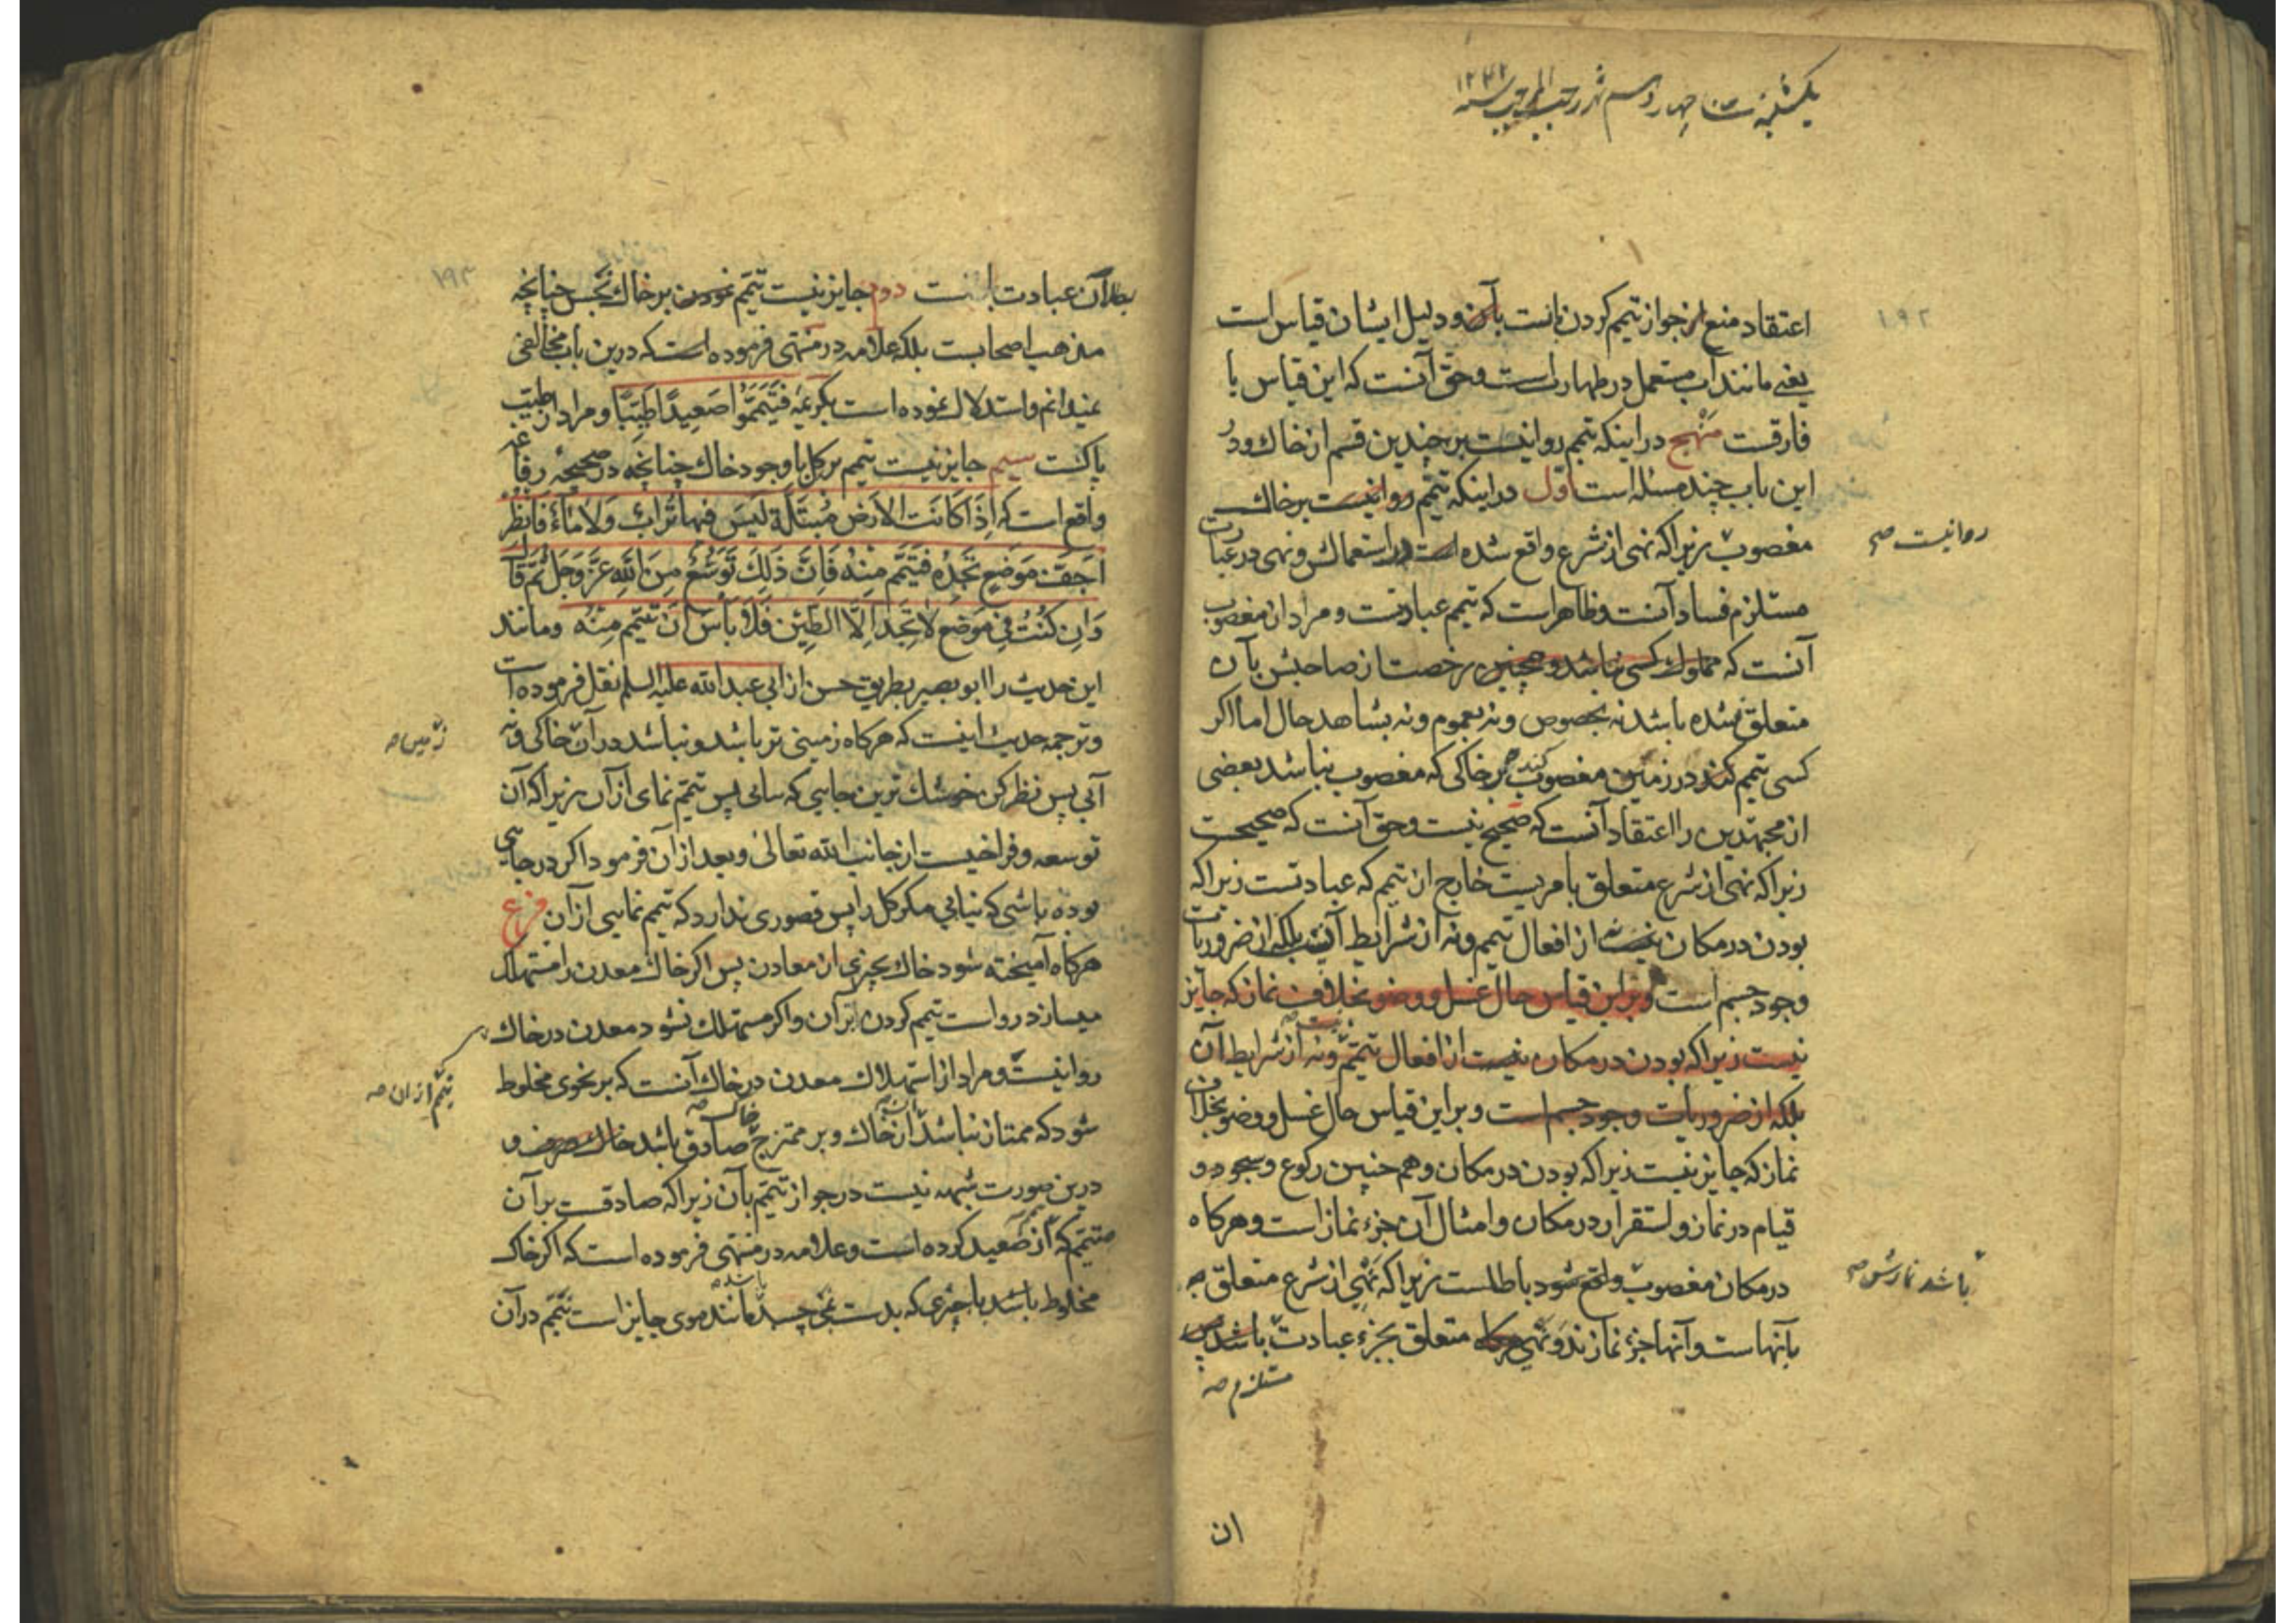 یکشنبه چهاردهم شهر رجب المرجب سنه ۱۲۴۲
۱۹۲
اعتقاد منع از جواز تیمم کردن بآنست و دلیل ایشان قیاس است
یعنی مانند آب مستعمل در طهارت است و حق آنست که این قیاس با
فارقست منهج در اینکه تیمم روا نیست بر چندین قسم از خاک و در
این باب چند مسئله است اول در اینکه تیمم روا نیست بر خاک
مغصوب زیرا که نهی از شرع واقع شده است در استعمالش و نهی در عبادت
روا نیست صح
مستلزم فساد آنست و ظاهر است که تیمم عبادتست و مراد از مغصوب
آنست که مملوک کسی نباشد و همچنین رخصت از صاحبش بآن
متعلق نشده باشد نه بخصوص و نه بعموم و نه بشاهد حال اما اگر
کسی تیمم کند در زمین مغصوب بر خاکی که مغصوب نباشد بعضی
از مجتهدین را اعتقاد آنست که صحیح نیست و حق آنست که صحیحست
زیرا که نهی از شرع متعلق بامریست خارج از تیمم که عبادتست زیرا که
بودن در مکان نیست از افعال تیمم و نه از شرایط آن بلکه از ضروریات
وجود جسم است و بر این قیاس حال غسل و وضو بخلاف نماز که جایز
نیست زیرا که بودن در مکان نیست از افعال تیمم و نه از شرایط آن
بلکه از ضروریات وجود جسم است و بر این قیاس حال غسل و وضو بخلاف
نماز که جایز نیست زیرا که بودن در مکان و هم چنین رکوع و سجود و
قیام در نماز و استقرار در مکان و امثال آن جزء نماز است و هرکاه
در مکان مغصوب واقع شود باطلست زیرا که نهی از شرع متعلق به
باشد نمازش صح
بآنهاست و آنها جزء نمازند و نهی هرکاه متعلق بجزء عبادت باشد
مستلزم صح
ان
۱۹۳
بطلان عبادت است دوم جایز نیست تیمم نمودن بر خاک نجس چنانچه
مذهب اصحابست بلکه علامه در منتهی فرموده است که درین باب مخالفی
نمیدانم و استدلال نموده است بکریمه فَتَیَمَّمُوا صَعِیدًا طَیِّبًا و مراد از طیب
پاکست سیم جایز نیست تیمم بر کل با وجود خاک چنانچه در صحیحه رفاعه
واقع است که اِذَا کَانَتِ الاَرضُ مُبتَلَّةً لَیسَ فیها تُرابٌ وَلا مَاءٌ فَانظُر
اَجَفَّ مَوضِعٍ تَجِدُهُ فَتَیَمَّم مِنهُ فَاِنَّ ذَلِكَ تَوسُّعٌ مِنَ اللهِ عَزَّ وَجَلَّ ثُمَّ قَالَ
وَاِن کُنتَ فِی مَوضِعٍ لا تَجِدُ اِلَّا الطِّینَ فَلا بَأسَ اَن تَتَیَمَّمَ مِنهُ و مانند
این حدیث را ابو بصیر بطریق حسن از ابی عبد الله علیه السلم نقل فرموده است
و ترجمه حدیث اینست که هرکاه زمینی تر باشد و نباشد در آن خاکی و نه
زمین صح
آبی پس نظر کن خشك ترین جایی که بیابی پس تیمم نمای از آن زیرا که آن
توسعه و فراخیست از جانب الله تعالی و بعد از آن فرمود اکر در جایی
بوده باشی که نیابی مکر کل را پس قصوری ندارد که تیمم نمایی از آن فرع
هرکاه آمیخته شود خاک بچیزی از معادن پس اکر خاک معدن را مستهلک
میسازد روا است تیمم کردن بر آن و اکر مستهلک نشود معدن در خاک
روا نیست و مراد از استهلاک معدن در خاک آنست که بر نحوی مخلوط
تیمم از ان صح
شود که ممتاز نباشد از خاک و بر ممتزج خاک صادق باشد خاک صرف و
درین صورت شبهه نیست در جواز تیمم بآن زیرا که صادقست بر آن
تیمم که از صعید کرده است و علامه در منتهی فرموده است که اکر خاک
مخلوط باشد با چیزی که بدست نمی چسبد مانند موی جایز است تیمم در آن